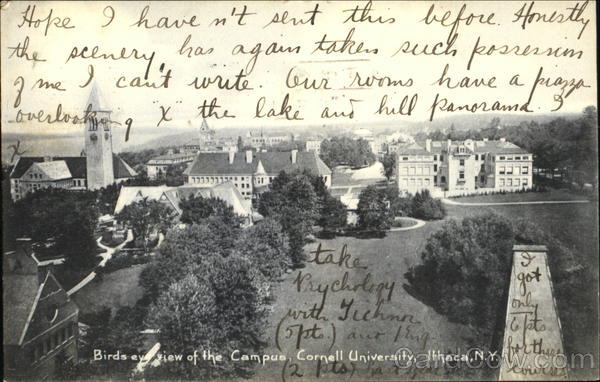 Hope I haven't sent this before. Honestly
the scenery has again taken such possession
of me I can't write. Our rooms have a piazza
overlooking x the lake and hill panorama. I
x
take
Psychology
with Tichnor
(5pts) and Eng.
(2 pts)
I
got
only
6 pts
for these
could
Birds eye view of the Campus, Cornell University, Ithaca, N.Y.
CardCow.com